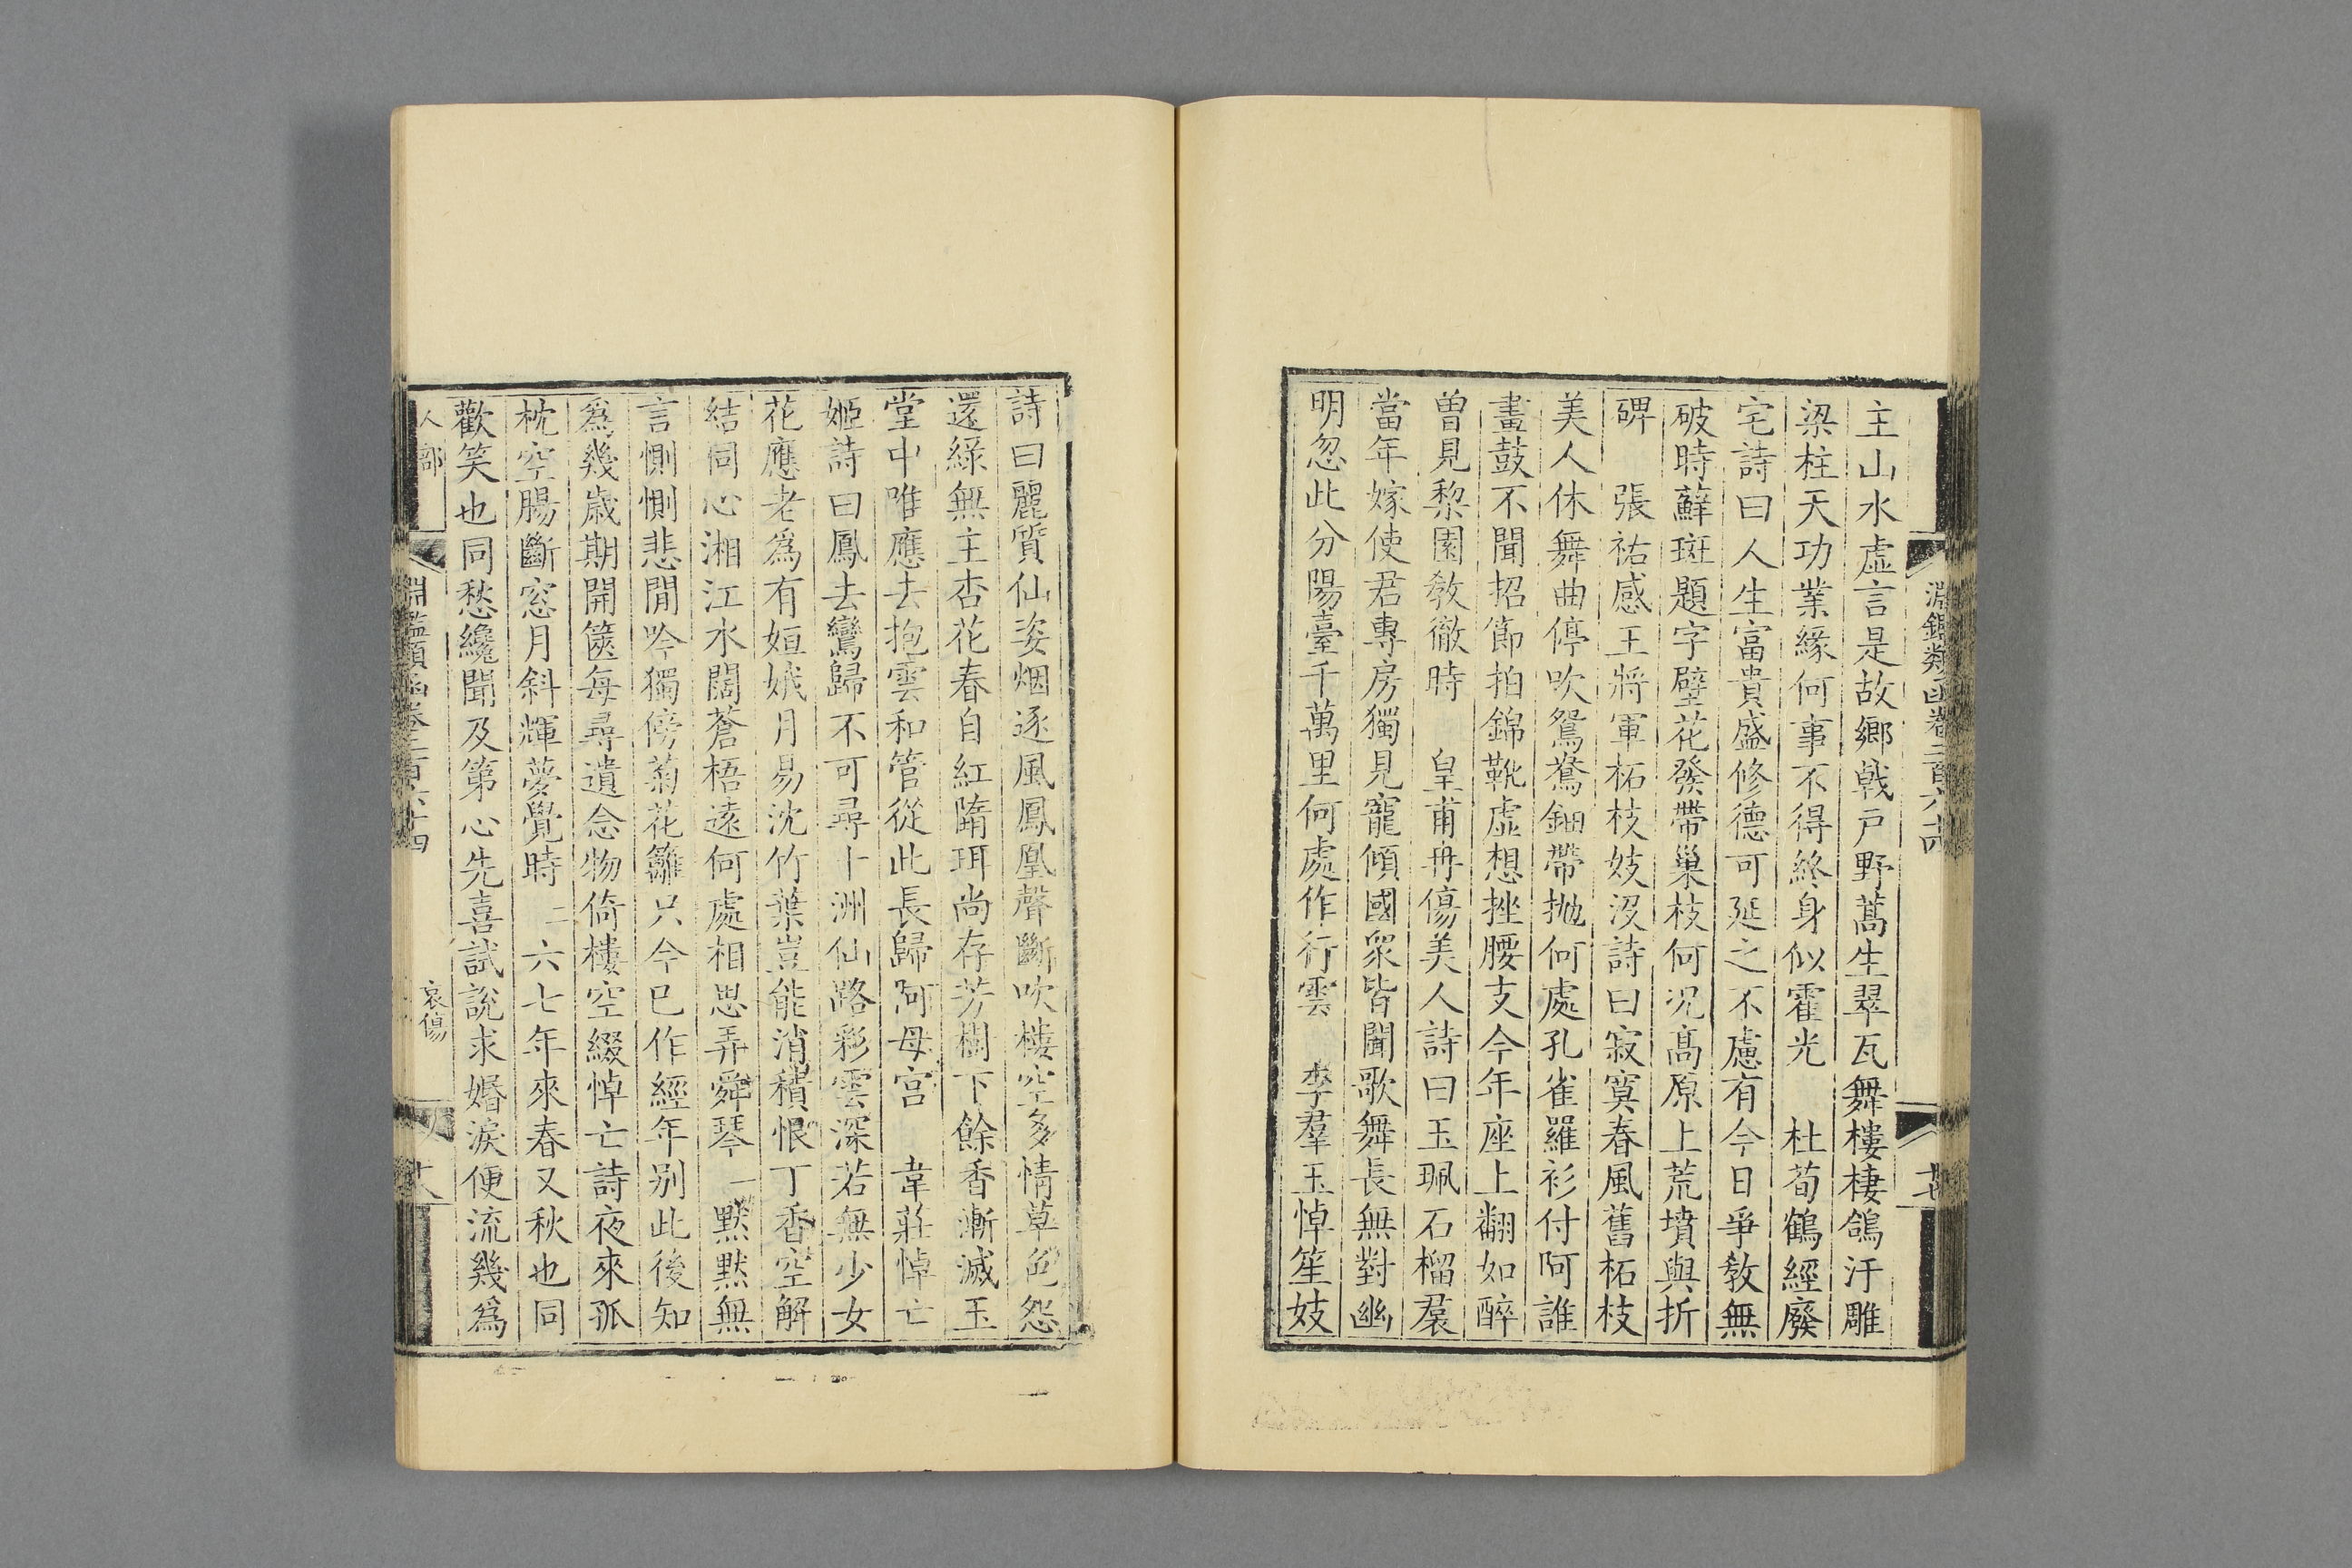 淵鑑類函卷二百六十四
廿七
主山水虛言是故鄉戟戸野蒿生翠瓦舞樓棲鴿汙雕
梁柱天功業緣何事不得終身似霍光　杜荀鶴經廢
宅詩曰人生富貴盛修德可延之不慮有今日爭敎無
破時蘚斑題字壁花發帶巢枝何況髙原上荒墳與折
碑　張祐感王將軍柘枝妓沒詩曰寂寞春風舊柘枝
美人休舞曲停吹鴛鴦鈿帶拋何處孔雀羅衫付阿誰
畫鼓不聞招節拍錦靴虛想挫腰支今年座上翻如醉
曾見黎園敎徹時　皇甫冉傷美人詩曰玉珮石榴裠
當年嫁使君專房獨見寵傾國衆皆聞歌舞長無對幽
明忽此分陽臺千萬里何處作行雲　李羣玉悼笙妓
詩曰麗質仙姿烟逐風鳳凰聲斷吹樓空多情草色怨
還綠無主杏花春自紅隋珥尚存芳樹下餘香漸減玉
堂中唯應去抱雲和管從此長歸阿母宫　韋莊悼亡
姬詩曰鳳去鸞歸不可尋十洲仙路彩雲深若無少女
花應老爲有姮娥月易沈竹葉豈能消積恨丁香空解
結同心湘江水闊蒼梧遠何處相思弄舜琴　一黙黙無
言惻惻悲閒吟獨傍菊花籬只今已作經年别此後知
爲幾歲期開篋每尋遺念物倚樓空綴悼亡詩夜來孤
枕空腸斷窓月斜輝夢覺時　二六七年來春又秋也同
歡笑也同愁纔聞及第心先喜試說求婚淚便流幾爲
人部
淵鑑類函卷二百六十四
哀傷
廿八